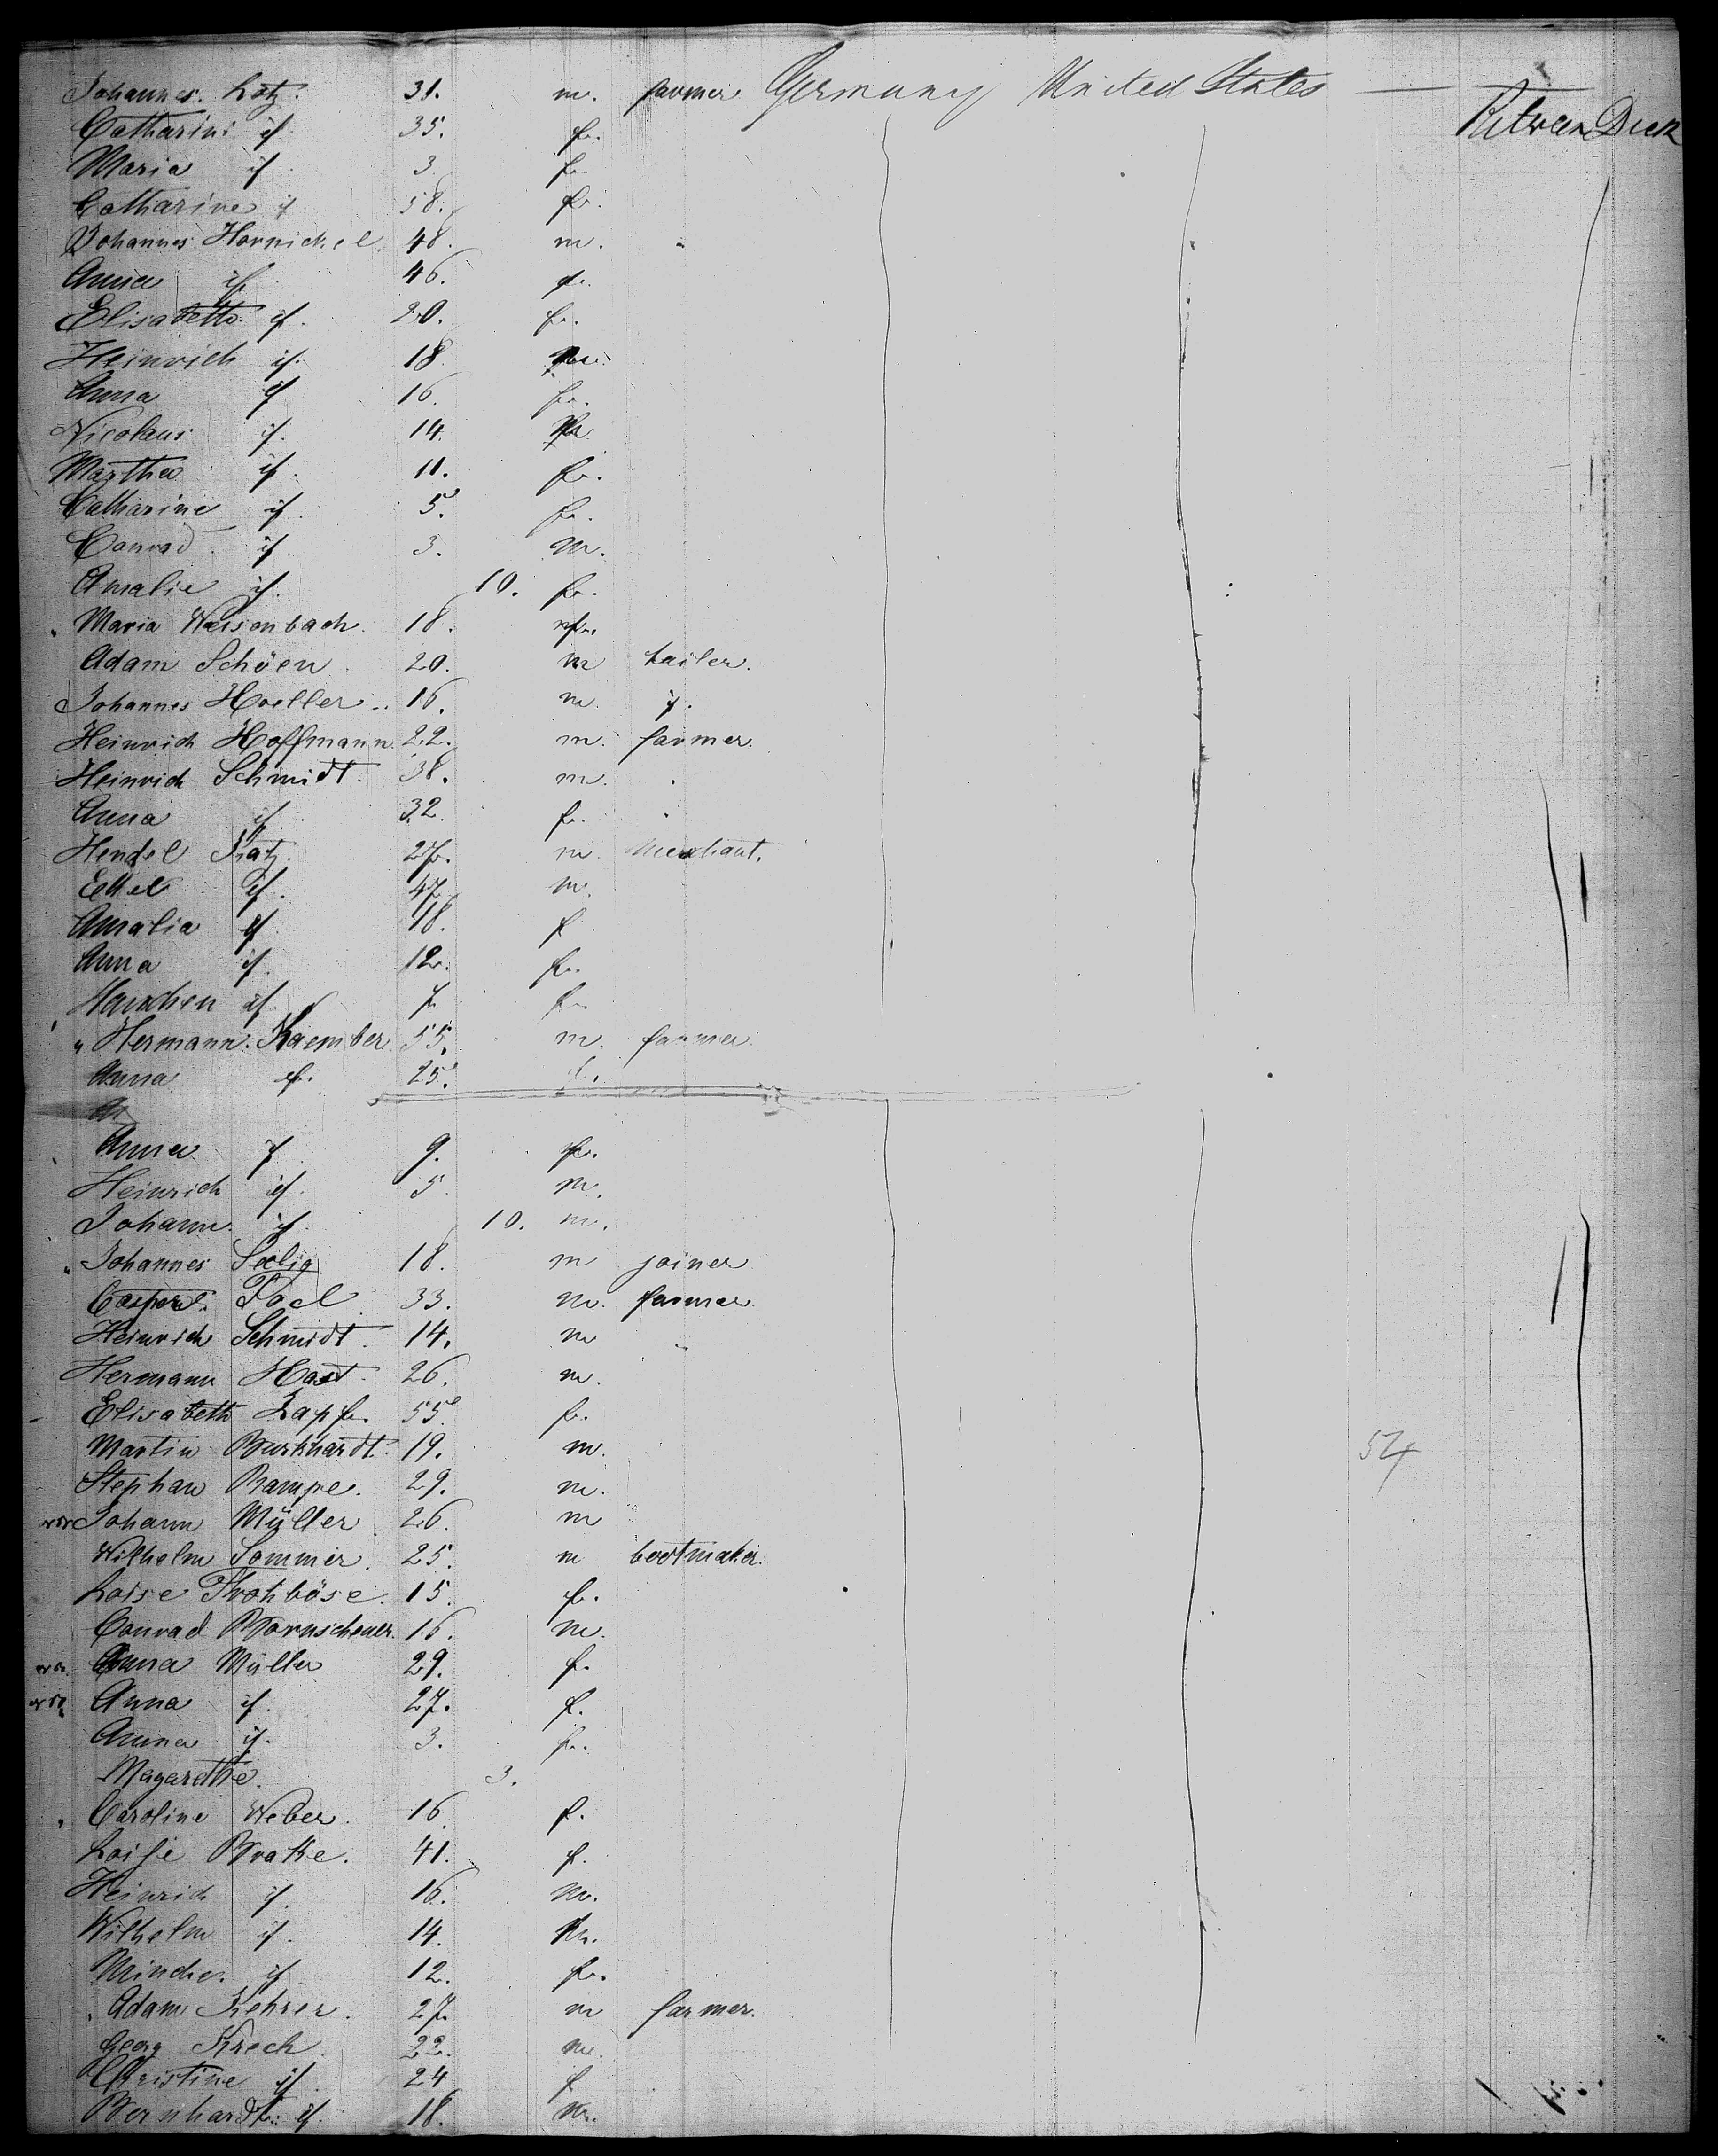 Johannes. Lotz. 31. m. farmer Germany United States
Catharine if 35. f.
Maria if 3. f.
Catharine if 58. f.
Johannes Hornickel 48. m. "
Anna if 46. f.
Elisabeth if. 20. f.
Heinrich if. 18 m.
Anna if 16. f.
Nicolaus if. 14. m
Martha if. 11. f.
Catharine if. 5. f.
Conrad if. 3. m.
Amalie if. 10. f.
Maria Weisenbach. 18. f.
Adam Schöen. 20. m tailer.
Johannes Hoeller.. 16. m. if.
Heinrich Hoffmann 22. m. farmer.
Heinrich Schmidt. 38. m. "
Anna if 32. f. "
Hendel Katz 27. m. Merchant.
if. 47. m.
Amalia if 18. f
Anna if. 12. f.
Hanchen if. 7 f.
" Hermann. Kaember 55. m. farmer
Anna if. 25. f.
An
Anna if 9. f.
Heinrich if. 5 m.
Johann. if. 10. m.
" Johannes Seelig 18. m joiner
Casper 33. m. farmer
Heinrich Schmidt. 14. m "
Hermann Hast 26. m.
Elisabeth Zapf. 55. f.
Martin Burkhardt. 19. m. 54
Stephan Rampe. 29. m.
Johann Müller 26. m
Wilhelm Sommer. 25. m bootmaker.
Loise Frohböse. 15. f.
Conrad Bornscheuer. 16. m.
Anna Müller 29. f.
Anna if. 27. f.
Anna if. 3. f.
Magarethe. 3.
Caroline Weber. 16 f.
Loise Brake. 41. f.
Heinrich if. 16. m.
Wilhelm if. 14. m.
Minche. if 12. f.
Adam Kehrer. 27. m farmer.
Georg Krech. 22. m.
Christine if 24 f
Bernhardt. if. 18. m.